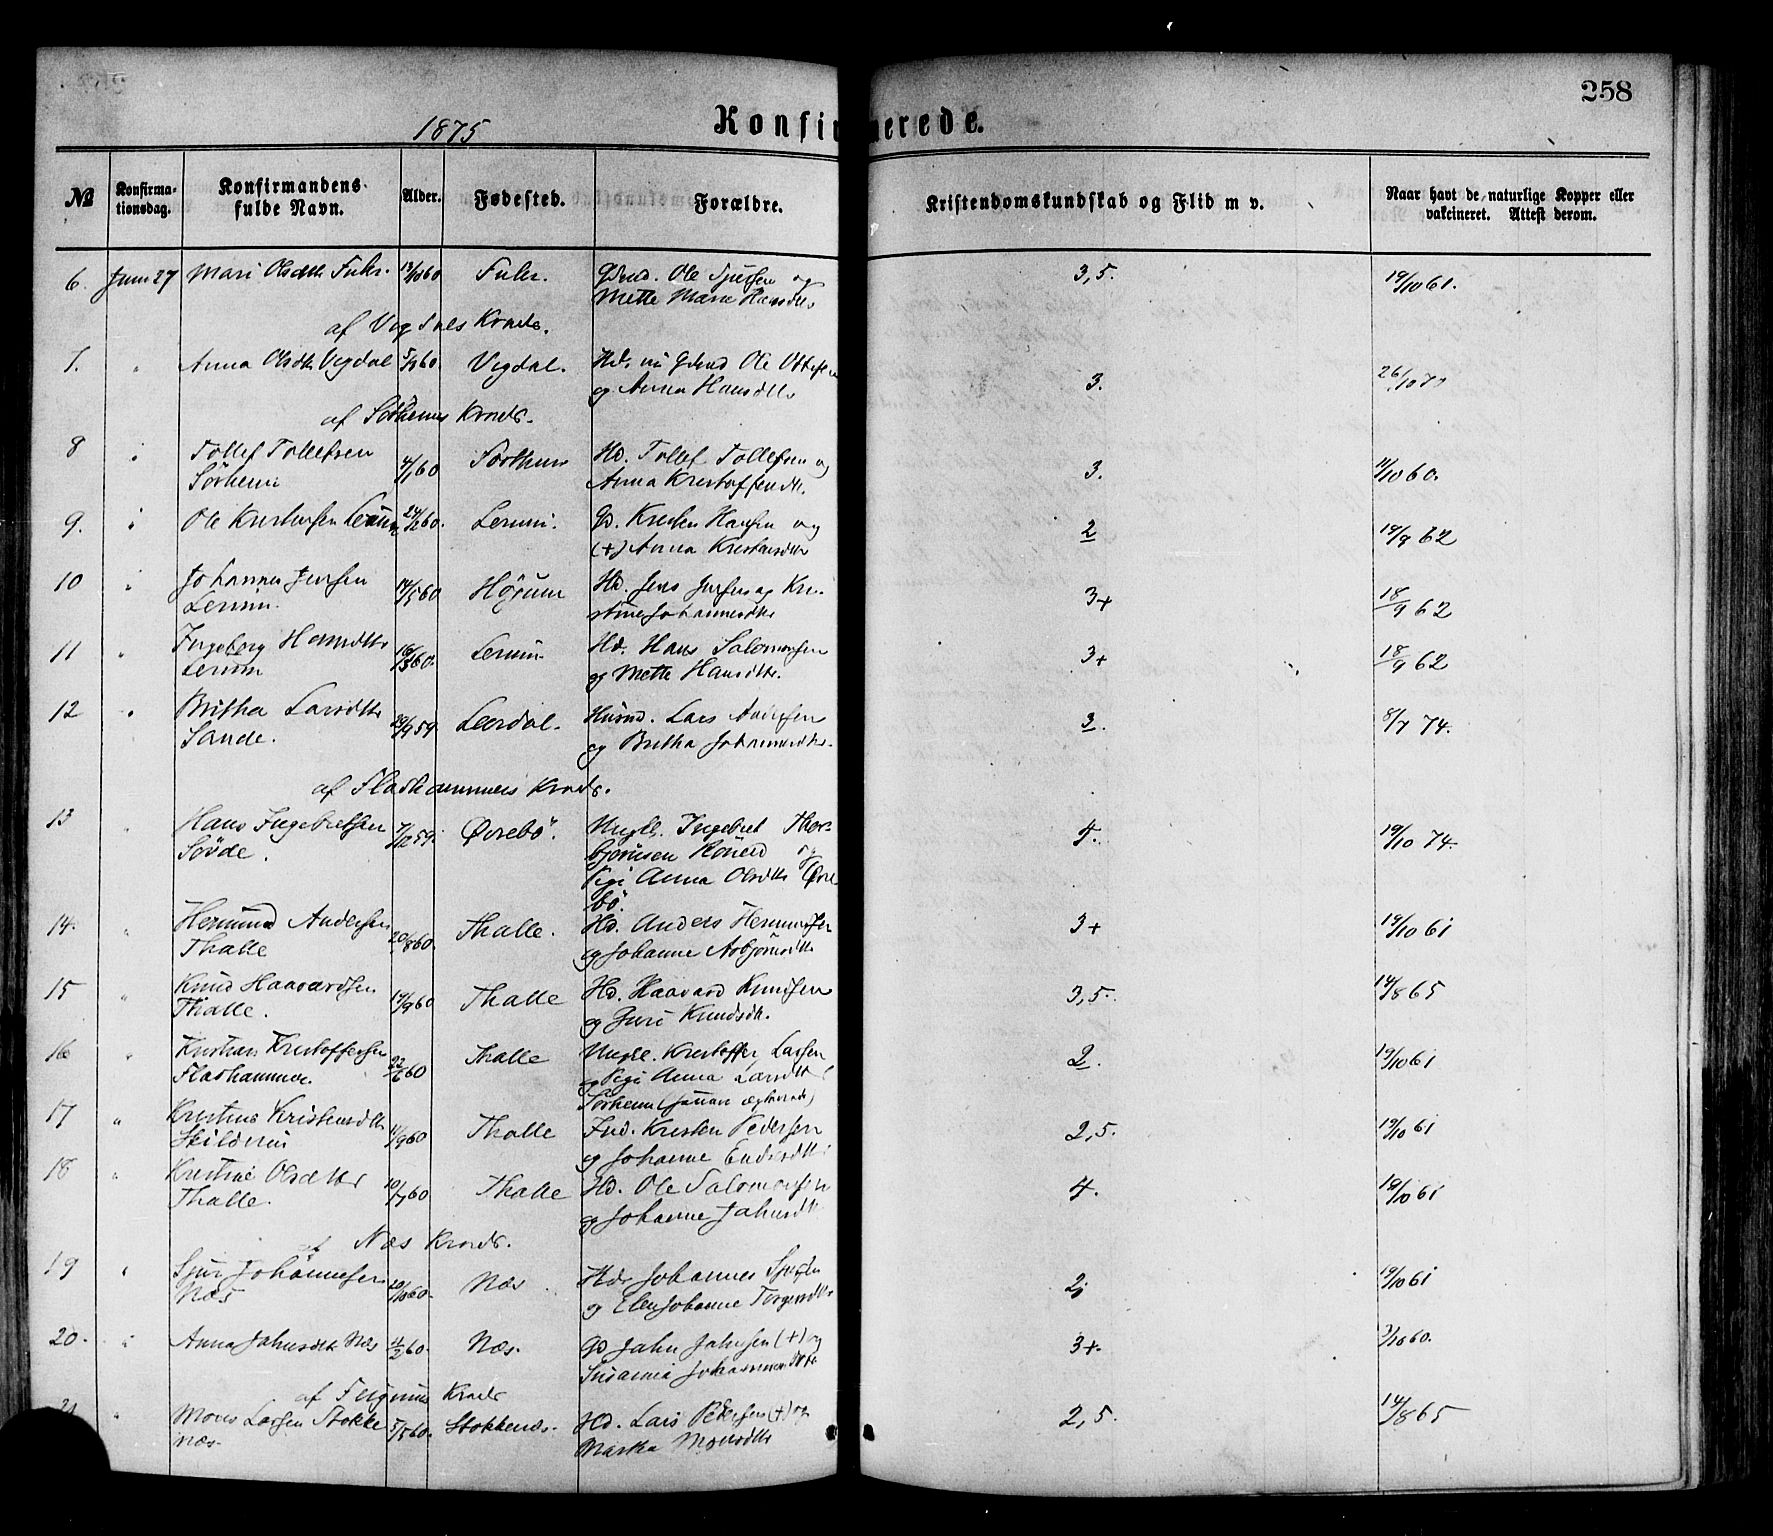 258
1875 Konfirmerede.
№ Konfirma- Konfirmandens Alder. Fødested. Forældre. Kristendomskundskab og Flid m v. Naar havt de naturlige Kopper eller
tionsdag. fulde Navn. vakcineret. Attest derom.
6. Juni 27 Mari Olsdtr 13/10 60 Ole og 3,5. 19/10 61.
Mette Marie Hansdtr
af Vigdals Kreds.
7. " Anna Olsdtr Vigdal 60. Vigdal. Gbmd Ole 3. 26/10 7
og Anna Hansdtr
af Sørheims Kreds.
8 " Tollef Tollefsen 60 Sørheim Hd. Tollef Tollefsen og 3. 11/10 60.
Sørheim Anna Kristoffersdtr.
9. " Ole Kristensen Lerum 24/ 60. Lerum. Gd. Kristen Hansen og 2 19/9 62
(+) Anna Kristensdtr
10 " Johannes Jensen 14/5 60 Høyum Hd. Jens Jensen og Kri- 3+ 18/9 62
Lerum. stine Johannesdtr
11 " Ingeborg Hansdtr 16/3 60. Lerum Hd. Hans Salomonsen 3+ 18/9 62
Lerum og Mette Hansdtr.
12 " Britha Larsdtr 29/9 59. Leerdal. Husmd. Lars Andersen 3. 8/7 74.
Sande. og Britha Johannesdtr.
af Flathammers Kreds.
13 " Hans Ingebretsen 7/12 59. Øvrebö. Ungkl. Ingebret Thor- 4. 19/10 74.
Søvde. bjørnsen og
Pige Anna Olsdtr Øvre
bö.
14. " Hermund Andersen 20/8 60. Thalle. Hd. Anders Hermundsen 3+ 19/10 61
Thalle og Johanne Asbjørnsdtr
15 " Knud Haavardsen 14/9 60 Thalle Hd. Haavard Knudsen 3,5. 14/8 65
Thalle. og Guri Knudsdtr.
16 " Kristian Kristoffersen 22/6 60 Thalle Ungkl. Kristoffer Larsen 2. 19/10 61
Flathammer. og Pige Anna Larsdtr
Sørheim
17 " Kristine Kristensdtr 11/9 60 Thalle Kristen Pedersen 2,5. 19/10 61
og Johanne Endresdtr
18 " Kristine Olsdtr 10/7 60 Thalle Hd. Ole Salomonsen 4. 19/10 61
Thalle. og Johanne Jahnsdtr
af Næs Kreds.
19 " Sjur Johannesen 20/10 60. Næs Johannes 2 19/10 61
Næs og Elen Johanne Torgersdtr
20. " Anna Jahnsdtr Næs 60. Næs. Gd Jahn Jahnsen (+) og 3+. 60.
Susanna Johannesdtr
af Kreds
21 " Mons Larsen Stokke 5/5 60. Stokkenæs. Hd. Lars Pedersen (+) og 2,5. 14/8 65
næs. Martha Monsdtr